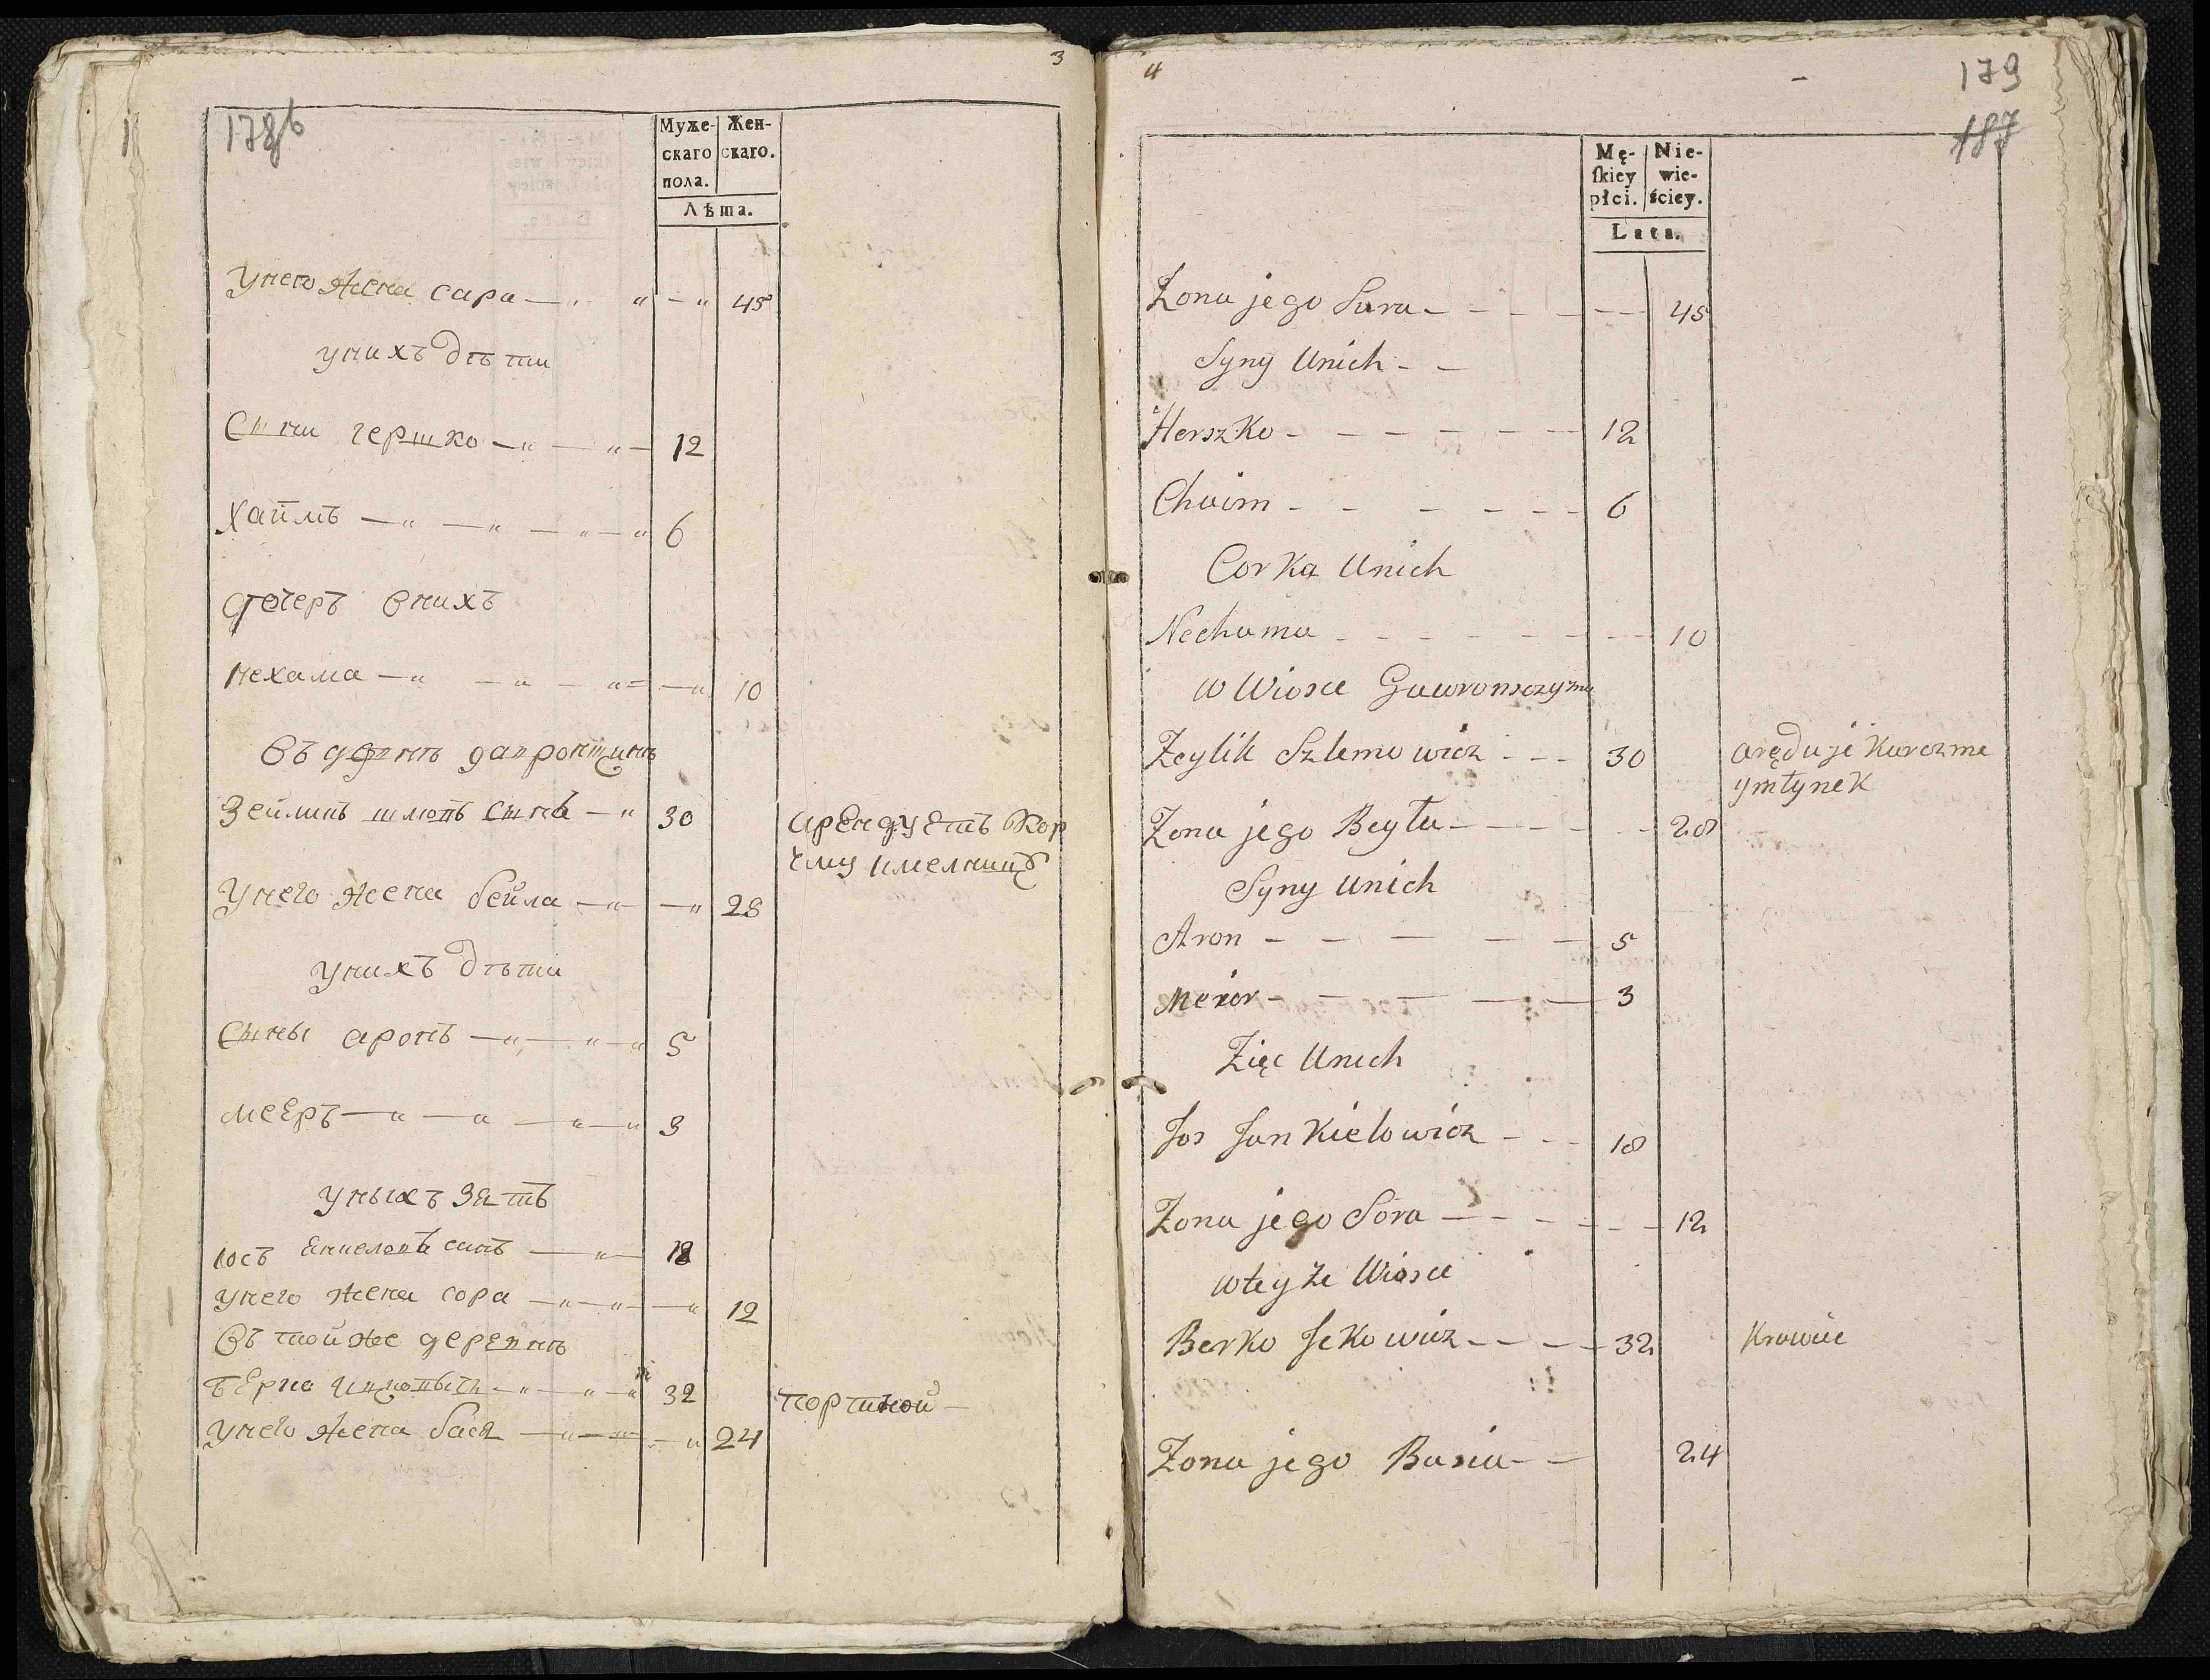 3
178б
Муже-
скаго
пола.
Жен-
скаго.
Лѣта.
Унего жена сара — " " — " 45
унихъ дѣти
Сыни гершко — " — " — 12
Хаимъ — " — " — " — " 6
дочеръ внихъ
нехама — " — " — " — " 10
Въ деревнѣ гавронщинѣ
Зейликъ шлiовъ сынъ — " 30 арендуетъ кор
чму имелницу
Унего жена бейла — " — " 28
унихъ дѣти
Сыны аронъ — " — " — " 5
меeръ — " — " — " — " 3
уныхъ зять
iосъ янкелевъ синъ — " — 18
унего жена сора — " — " — " 12
Въ тойже деревнѣ
берко ицковичъ — " — " — " 32 портной —
унего жена бася — " — " — " 24
4
179
187
Mę-
ſkiey
płci.
Nie-
wie-
ściey.
Lata.
Zona jego Sara - - - - - - 45
Syny Unich - -
Herszko - - - - - - - 12
Chaim - - - - - - 6
Corka Unich
Nechama - - - - - - - - 10
w Wiosce Gawronszczyzna
Zeylik Szlemowicz - - - 30 aręduje karczme
y młynek
Zona jego Beyła - - - - - 28
Syny Unich
Aron - - - - - 5
Meior - - - - - 3
Zięc Unich
Jos Jankielowicz - - - 18
Zona jego Sora - - - - - - 12
w teyże Wiosce
Berko Jckowicz - - - - 32 Krawiec
Zona jego Basia - - 24